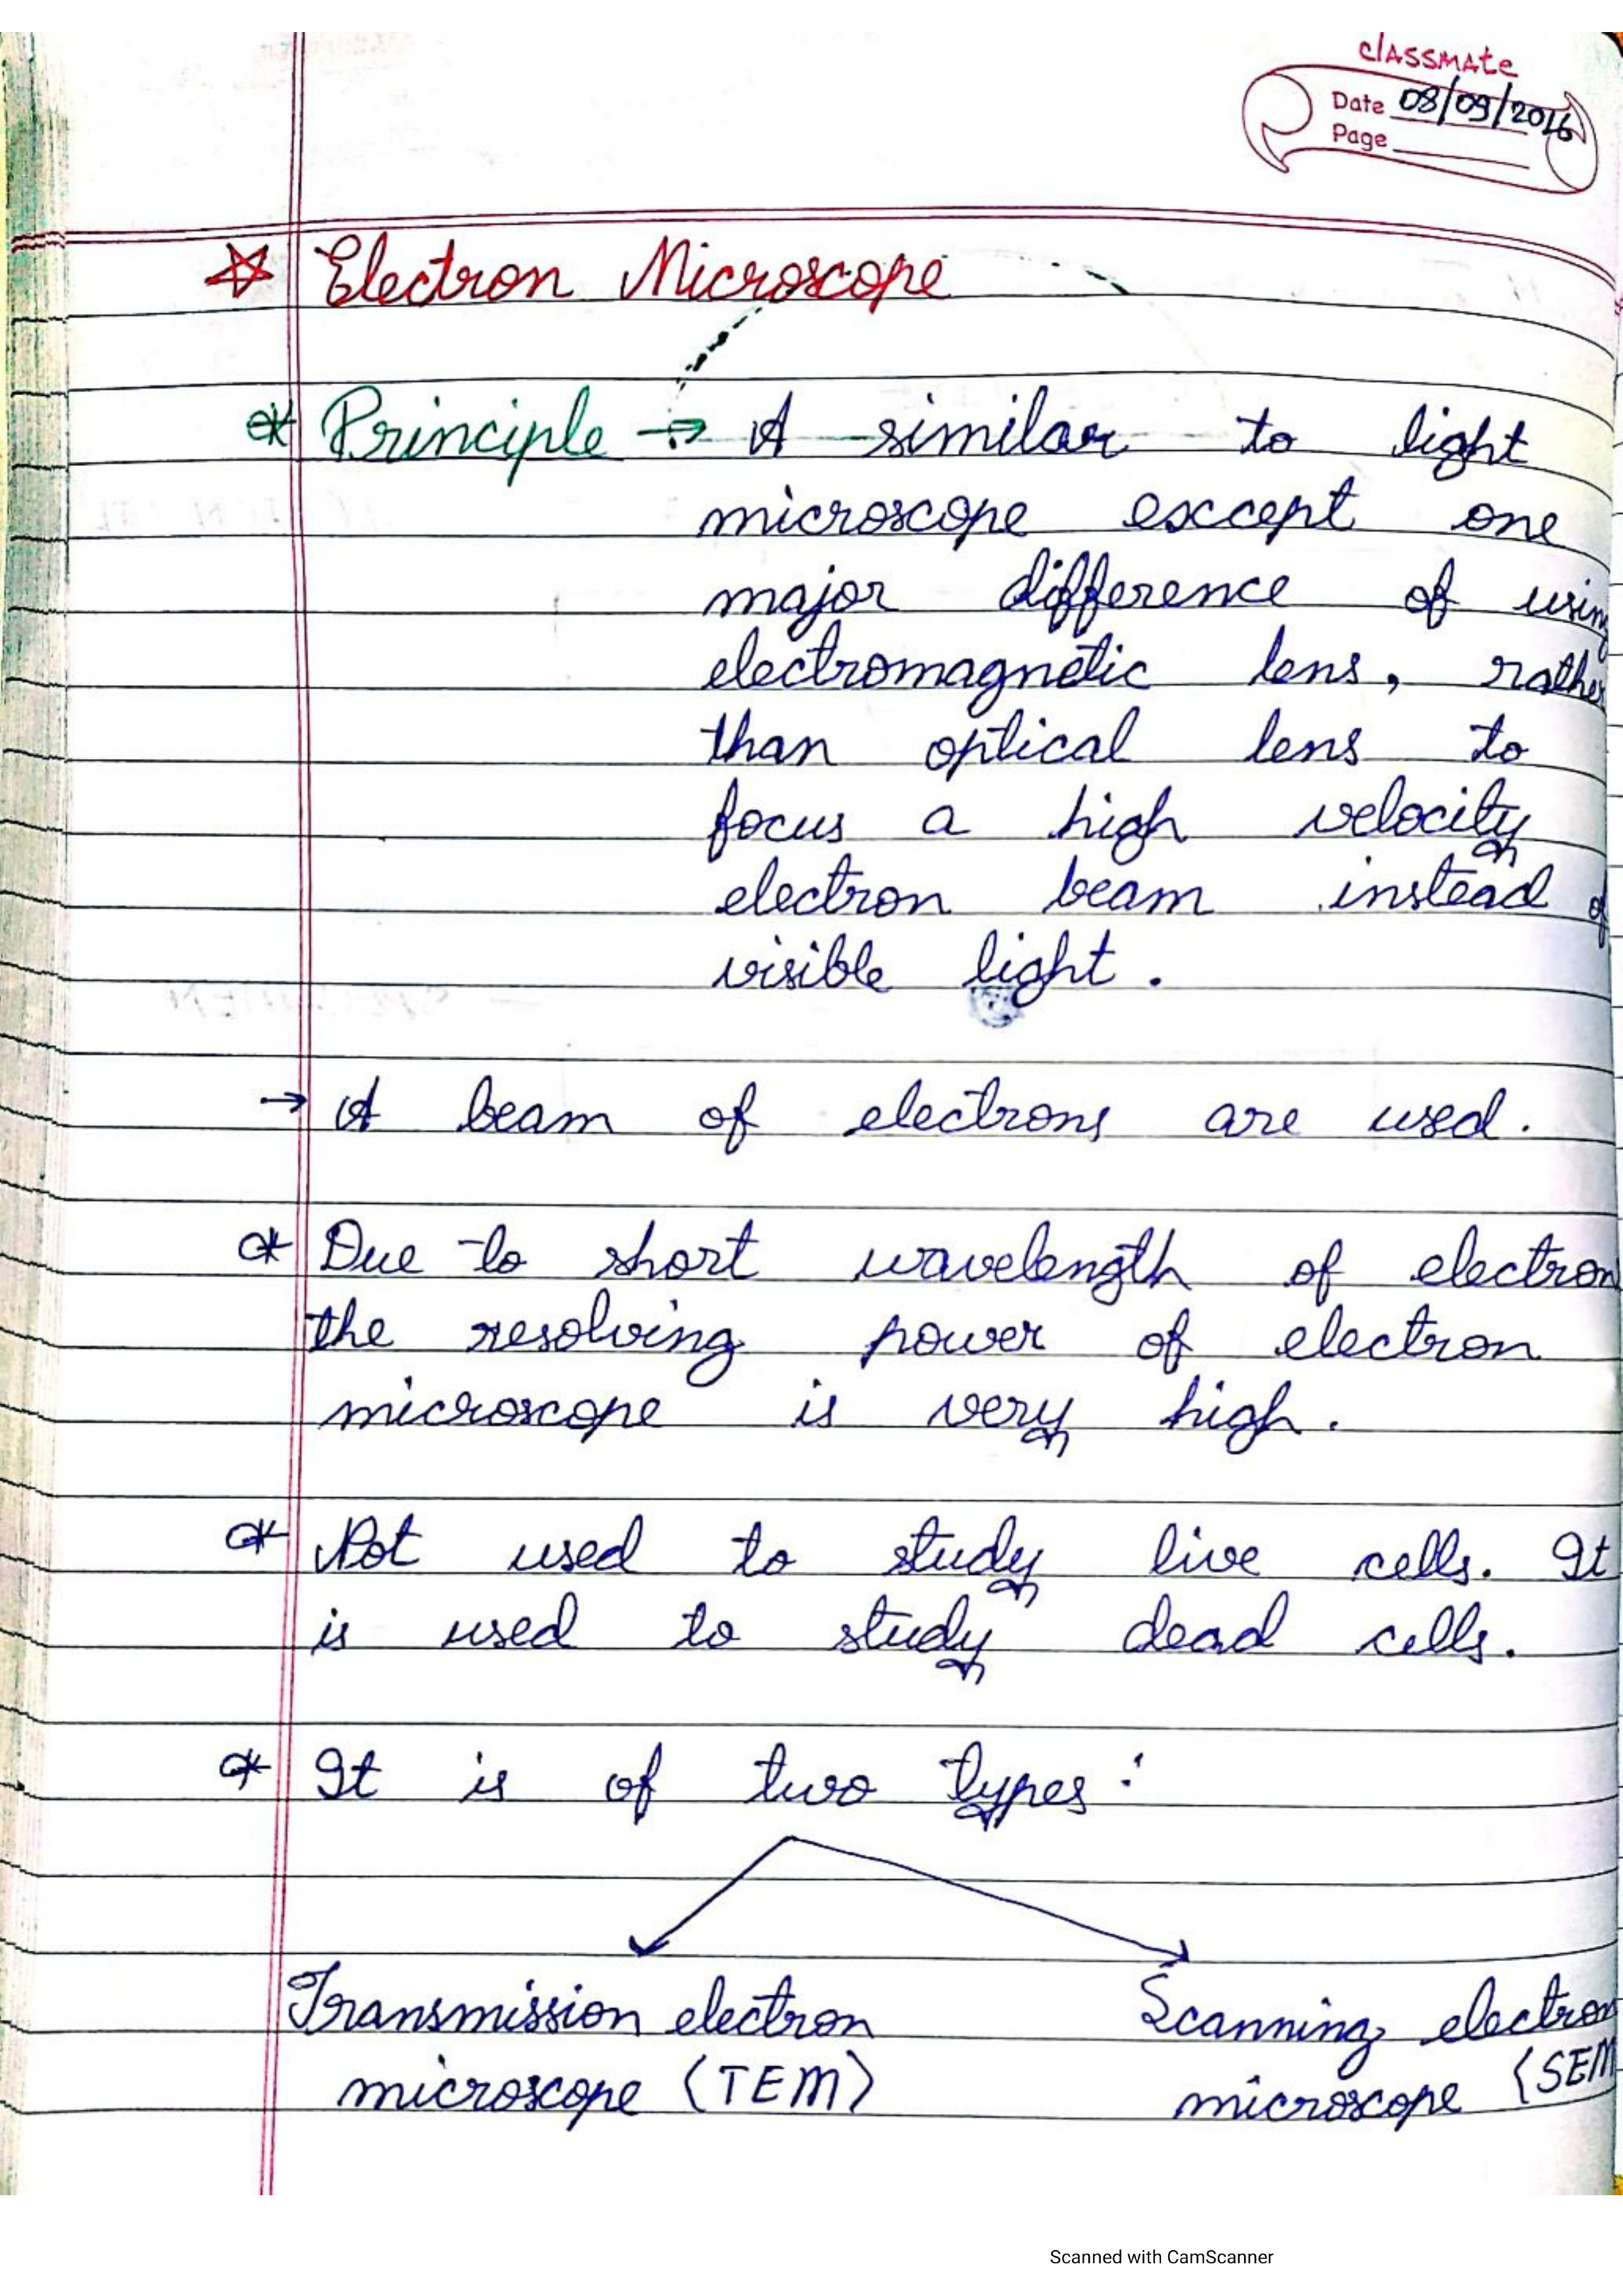 classmate
Date 08/09/2016
Page
Electron Microscope
* Principle → A similar to light
microscope except one
major difference of using
electromagnetic lens, rather
than optical lens to
focus a high velocity
electron beam instead of
visible light.
→ A beam of electrons are used.
* Due to short wavelength of electron
the resolving power of electron
microscope is very high.
* Not used to study live cells. It
is used to study dead cells.
* It is of two types:
Transmission electron
microscope (TEM)
Scanning electron
microscope (SEM
Scanned with CamScanner